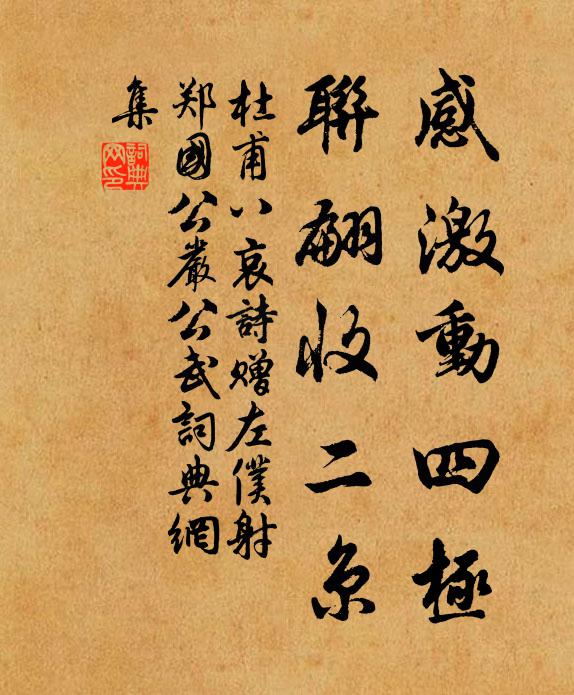 感激動四極
聯翩收二京
杜甫八哀詩赠左僕射
郑國公嚴公武詞典網
集
詞典
网印